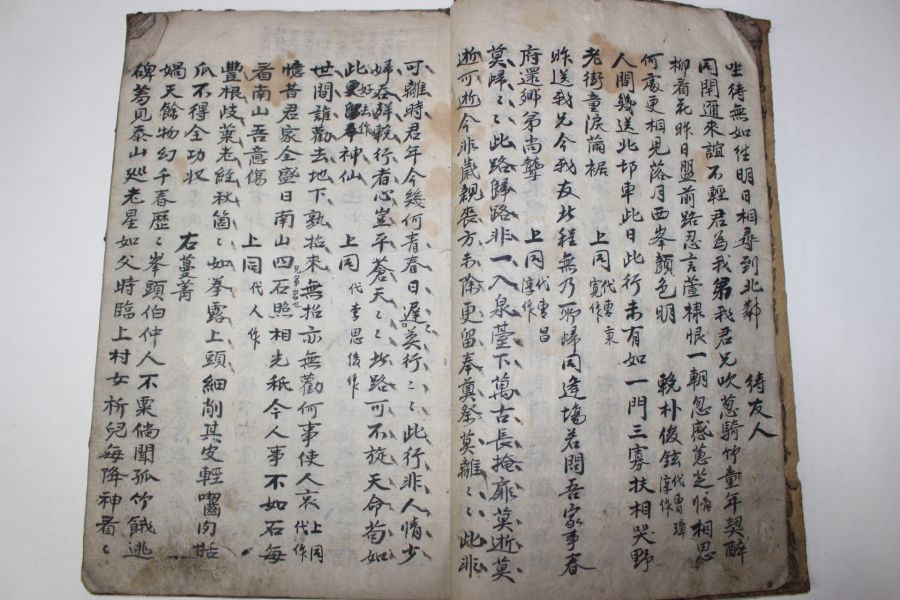 坐待無如徃明日相尋到北鄰
待友人
同閈邇來誼不輕君為我弟我君兄吹葱騎竹童年契醉
柳看花昨日盟前路忍言萱棣恨一朝忽感蕙芝情相思
何處更相見落月西峯顏色明
輓朴俊鉉代曹璋淳作
人間幾送北邙車此日此行未有如一門三寡扶相哭野
老街童淚滿裾
上同代曹寬作
昨送我兄今我友此程無乃所歸同逢塲若問吾家事春
府還鄉弟尚嬰
上同代曹昌淳作
莫歸莫歸此路歸路非一入泉臺下萬古長掩扉莫逝莫
逝可逝今非歲親喪方未除更留奉奠祭莫離莫離此非
可離時君年今幾何青春日遲遲莫行莫行此行非人情少
婦吞聲輓行者心豈平蒼天蒼天此路可不旋天命苟如
此好去作神仙
上同代李思俊作
世間誰勸去地下孰招來無招亦無勸何事使人哀
上同代作
憶昔君家全盛日南山四石照相光秖今人事不如石每
看南山吾意傷
上同代人作
豐根歧葉老經秋箇箇如拳露上頭細削其皮輕嚼肉甘
瓜不得全功收
右蔓菁
媧天餘物幻千春歷歷峯頭伯仲人不粟倘聞孤竹餓逃
碑羞見泰山巡老星如父時臨上村女祈兒每降神看看